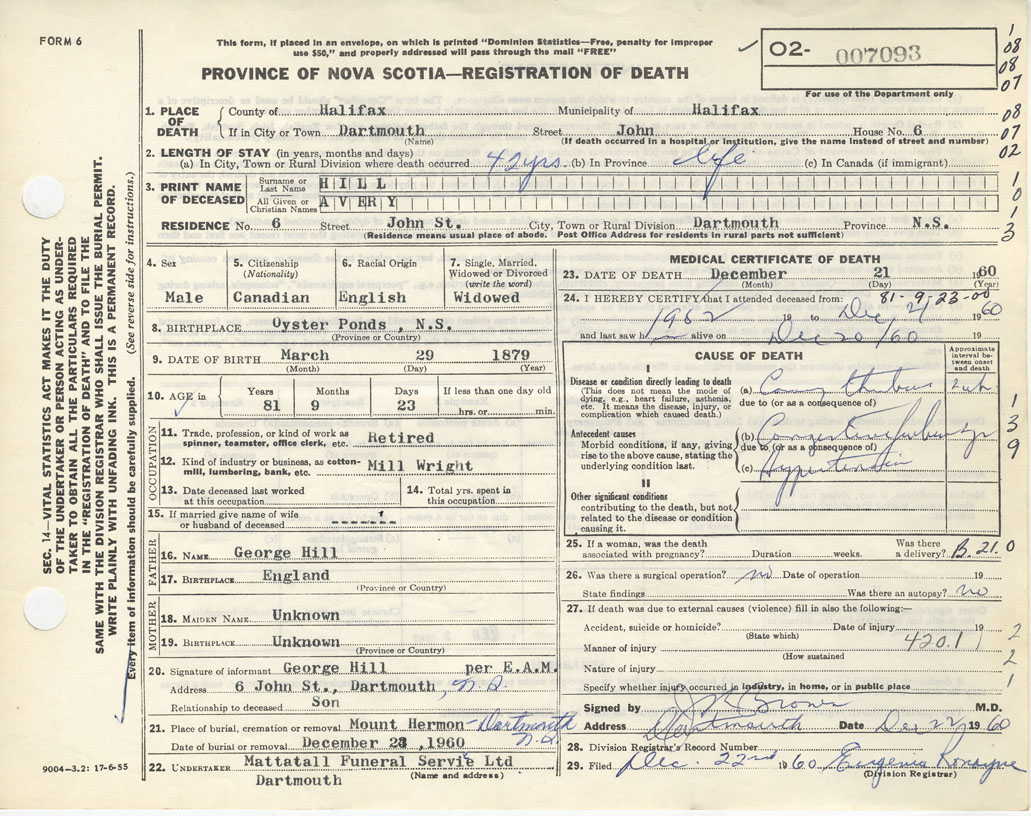 FORM 6
This form, if placed in an envelope, on which is printed "Dominion Statistics—Free, penalty for improper
use $50," and properly addressed will pass through the mail "FREE"
O2- 007093
For use of the Department only
PROVINCE OF NOVA SCOTIA—REGISTRATION OF DEATH
1. PLACE OF DEATH
County of Halifax Municipality of Halifax
If in City or Town Dartmouth Street John House No. 6
(Name) (If death occurred in a hospital or institution, give the name instead of street and number)
2. LENGTH OF STAY (in years, months and days)
(a) In City, Town or Rural Division where death occurred 42 yrs. (b) In Province life (c) In Canada (if immigrant)
3. PRINT NAME OF DECEASED
Surname or Last Name HILL
All Given or Christian Names AVERY
RESIDENCE No. 6 Street John St. City, Town or Rural Division Dartmouth Province N.S.
(Residence means usual place of abode. Post Office Address for residents in rural parts not sufficient)
1
08
08
07
08
07
02
1
0
1
3
SEC. 14—VITAL STATISTICS ACT MAKES IT THE DUTY
OF THE UNDERTAKER OR PERSON ACTING AS UNDER-
TAKER TO OBTAIN ALL THE PARTICULARS REQUIRED
IN THE "REGISTRATION OF DEATH" AND FILE THE
SAME WITH THE DIVISION REGISTRAR WHO SHALL ISSUE THE BURIAL PERMIT.
WRITE PLAINLY WITH UNFADING INK. THIS IS A PERMANENT RECORD.
Every item of information should be carefully supplied. (See reverse side for instructions.)
4. Sex
Male
5. Citizenship
(Nationality)
Canadian
6. Racial Origin
English
7. Single, Married,
Widowed or Divorced
(write the word)
Widowed
8. BIRTHPLACE Oyster Ponds , N.S.
(Province or Country)
9. DATE OF BIRTH March 29 1879
(Month) (Day) (Year)
10. AGE in
Years 81
Months 9
Days 23
If less than one day old
hrs. or min.
OCCUPATION
11. Trade, profession, or kind of work as
spinner, teamster, office clerk, etc. Retired
12. Kind of industry or business, as cotton-
mill, lumbering, bank, etc. Mill Wright
13. Date deceased last worked
at this occupation.
14. Total yrs. spent in
this occupation
15. If married give name of wife
or husband of deceased
FATHER
16. NAME George Hill
17. BIRTHPLACE England
(Province or Country)
MOTHER
18. MAIDEN NAME Unknown
19. BIRTHPLACE Unknown
(Province or Country)
20. Signature of informant George Hill per E.A.M.
Address 6 John St., Dartmouth, N.S.
Relationship to deceased Son
21. Place of burial, cremation or removal Mount Hermon - Dartmouth
N.S.
Date of burial or removal December 23 ,1960
22. UNDERTAKER Mattatall Funeral Servie Ltd
(Name and address)
Dartmouth
9004—3.2: 17-6-55
MEDICAL CERTIFICATE OF DEATH
23. DATE OF DEATH December 21 1960
(Month) (Day) (Year)
81-9-23-00
24. I HEREBY CERTIFY that I attended deceased from:
19 to Dec 21 1960
and last saw h alive on Dec 20/60 19
CAUSE OF DEATH
Approximate
interval be-
tween onset
and death
I
Disease or condition directly leading to death
(This does not mean the mode of
dying, e.g., heart failure, asthenia,
etc. It means the disease, injury, or
complication which caused death.)
(a)
due to (or as a consequence of)
Antecedent causes
Morbid conditions, if any, giving
rise to the above cause, stating the
underlying condition last.
(b)
due to (or as a consequence of)
(c) Hypertension
II
Other significant conditions
contributing to the death, but not
related to the disease or condition
causing it.
1
3
9
25. If a woman, was the death
associated with pregnancy? Duration weeks. Was there
a delivery? B.21.0
26. Was there a surgical operation? no Date of operation 19
State findings Was there an autopsy? no
27. If death was due to external causes (violence) fill in also the following:—
Accident, suicide or homicide? Date of injury 19
(State which)
Manner of injury 420.1
(How sustained
Nature of injury
Specify whether injury occurred in industry, in home, or in public place
2
2
1
1
Signed by M.D.
Address Dartmouth Date Dec 22 1960
28. Division Registrar's Record Number
29. Filed Dec. 22nd 1960 Eugenia Ronayne
(Division Registrar)